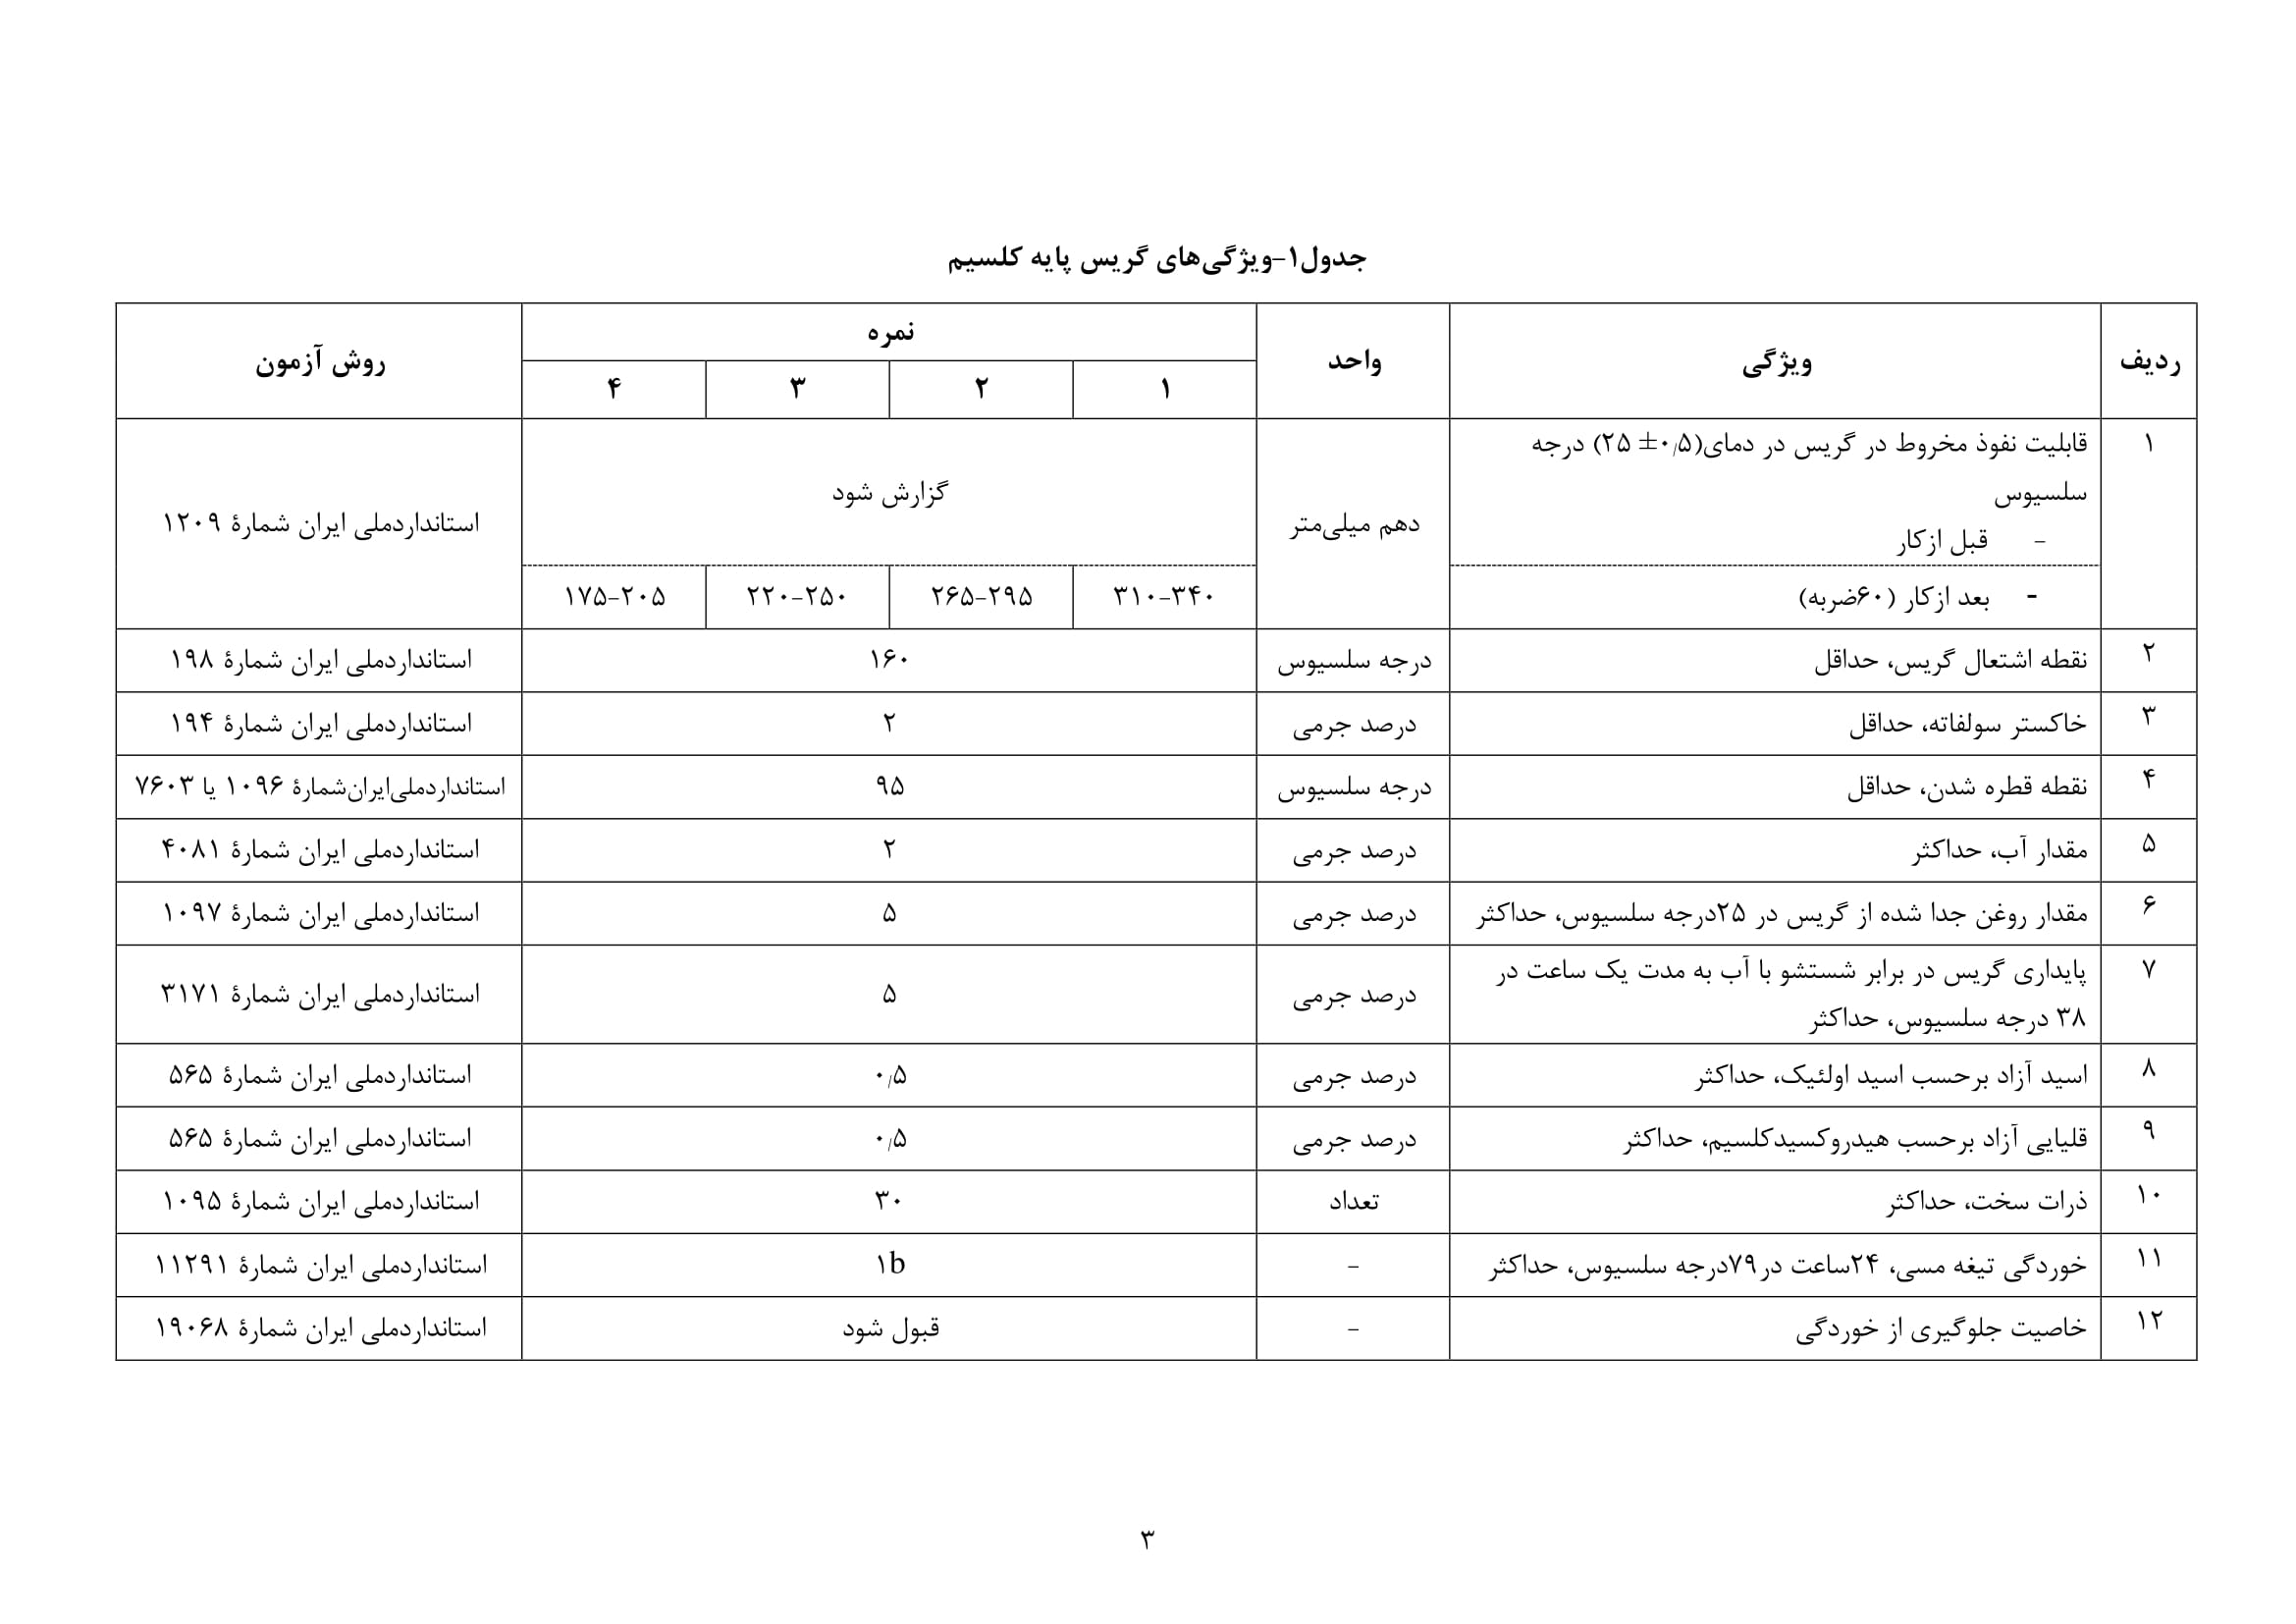 جدول۱-ویژگی‌های گریس پایه کلسیم
ردیف ویژگی واحد نمره روش آزمون
۱ ۲ ۳ ۴
۱ قابلیت نفوذ مخروط در گریس در دمای(۰٫۵± ۲۵) درجه
سلسیوس
- قبل ازکار
دهم میلی‌متر گزارش شود استانداردملی ایران شمارۀ ۱۲۰۹
- بعد ازکار (۶۰ضربه) ۳۱۰-۳۴۰ ۲۶۵-۲۹۵ ۲۲۰-۲۵۰ ۱۷۵-۲۰۵
۲ نقطه اشتعال گریس، حداقل درجه سلسیوس ۱۶۰ استانداردملی ایران شمارۀ ۱۹۸
۳ خاکستر سولفاته، حداقل درصد جرمی ۲ استانداردملی ایران شمارۀ ۱۹۴
۴ نقطه قطره شدن، حداقل درجه سلسیوس ۹۵ استانداردملی‌ایران‌شمارۀ ۱۰۹۶ یا ۷۶۰۳
۵ مقدار آب، حداکثر درصد جرمی ۲ استانداردملی ایران شمارۀ ۴۰۸۱
۶ مقدار روغن جدا شده از گریس در ۲۵درجه سلسیوس، حداکثر درصد جرمی ۵ استانداردملی ایران شمارۀ ۱۰۹۷
۷ پایداری گریس در برابر شستشو با آب به مدت یک ساعت در
۳۸ درجه سلسیوس، حداکثر درصد جرمی ۵ استانداردملی ایران شمارۀ ۳۱۷۱
۸ اسید آزاد برحسب اسید اولئیک، حداکثر درصد جرمی ۰٫۵ استانداردملی ایران شمارۀ ۵۶۵
۹ قلیایی آزاد برحسب هیدروکسیدکلسیم، حداکثر درصد جرمی ۰٫۵ استانداردملی ایران شمارۀ ۵۶۵
۱۰ ذرات سخت، حداکثر تعداد ۳۰ استانداردملی ایران شمارۀ ۱۰۹۵
۱۱ خوردگی تیغه مسی، ۲۴ساعت در۷۹درجه سلسیوس، حداکثر - ۱b استانداردملی ایران شمارۀ ۱۱۲۹۱
۱۲ خاصیت جلوگیری از خوردگی - قبول شود استانداردملی ایران شمارۀ ۱۹۰۶۸
۳